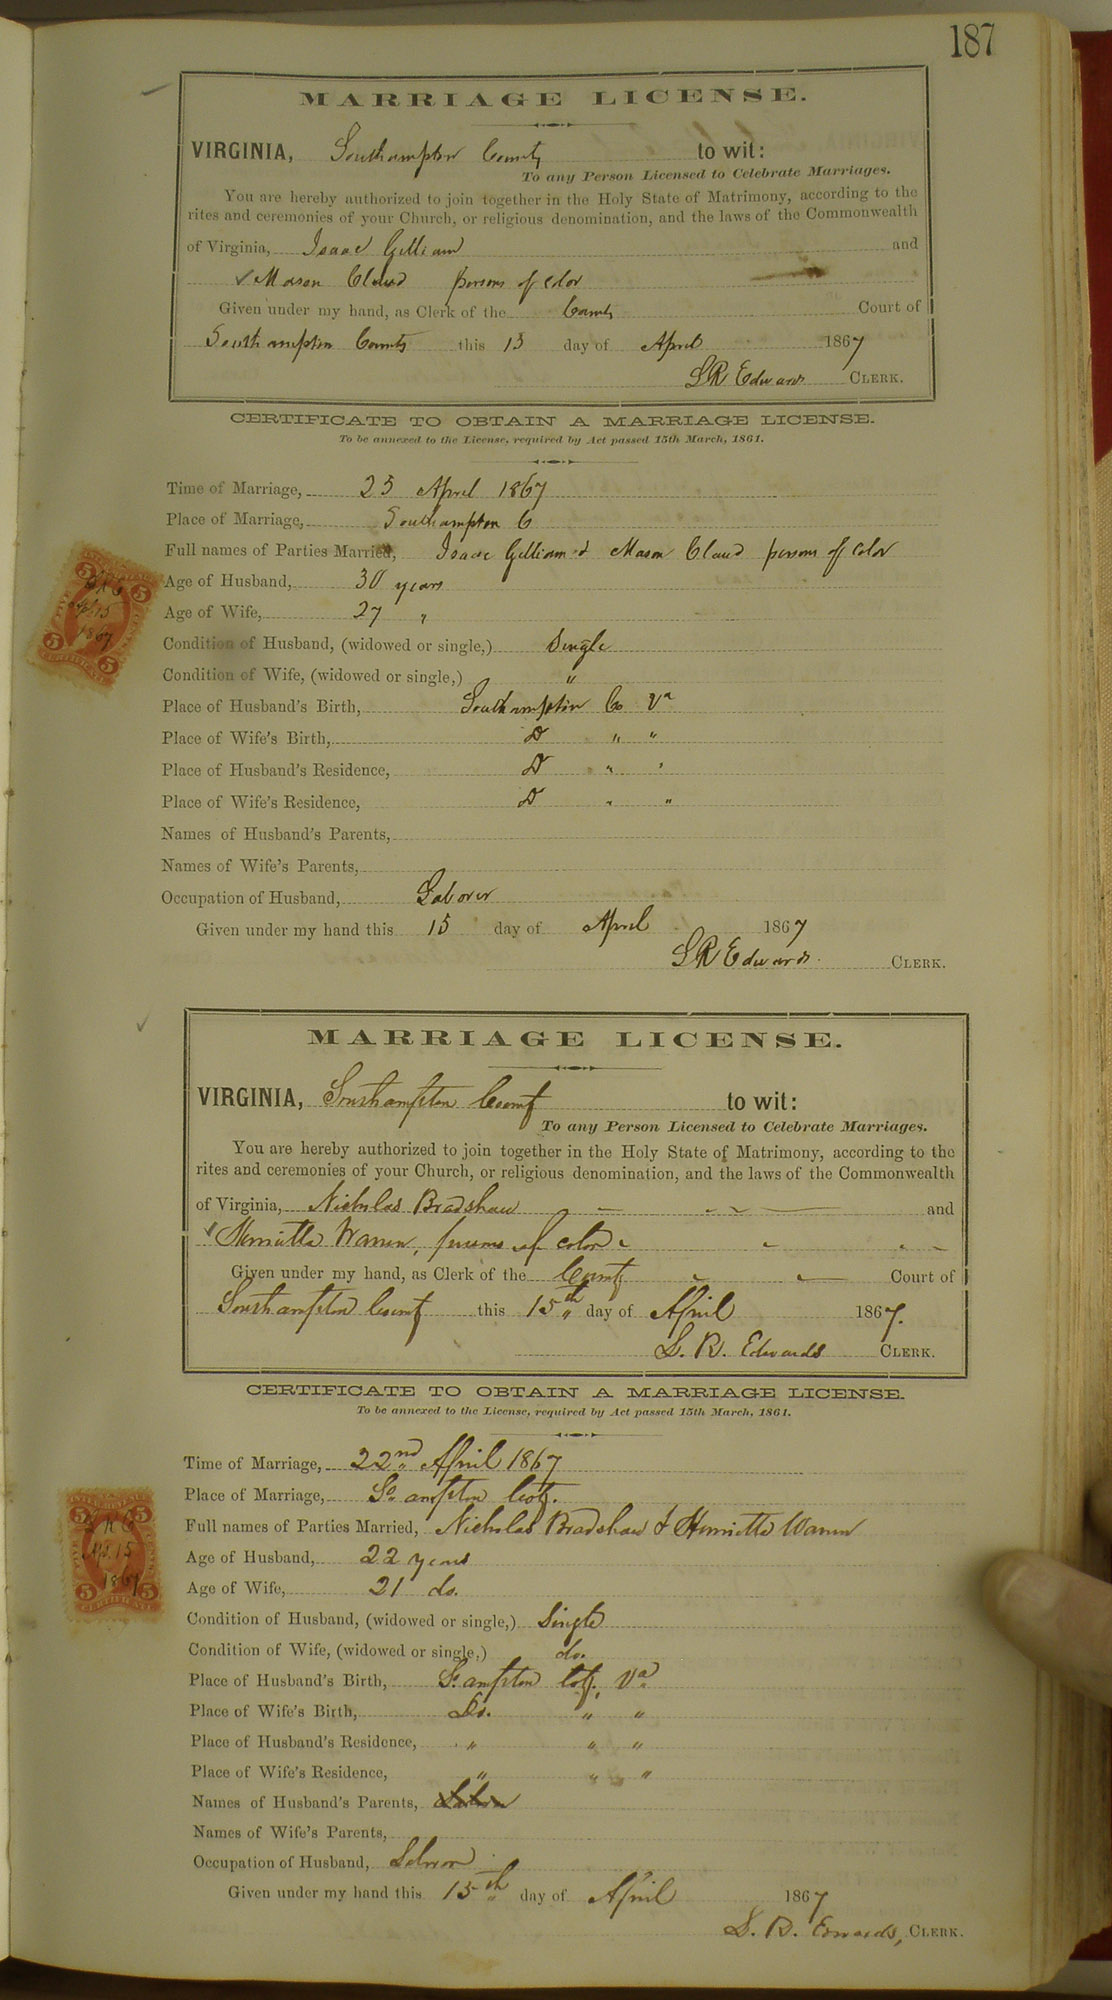 187
MARRIAGE LICENSE.
VIRGINIA, Southampton County to wit:
To any Person Licensed to Celebrate Marriages.
You are hereby authorized to join together in the Holy State of Matrimony, according to the
rites and ceremonies of your Church, or religious denomination, and the laws of the Commonwealth
of Virginia, Isaac Gilliam and
Mason Claud persons of color
Given under my hand, as Clerk of the County Court of
Southampton County this 15 day of April 1867
LR Edwards CLERK.
CERTIFICATE TO OBTAIN A MARRIAGE LICENSE.
To be annexed to the License, required by Act passed 15th March, 1861.
Time of Marriage, 25 April 1867
Place of Marriage, Southampton C
Full names of Parties Married, Isaac Gilliam & Mason Claud persons of color
Age of Husband, 30 years
Age of Wife, 27 "
Condition of Husband, (widowed or single,) Single
Condition of Wife, (widowed or single,) "
Place of Husband's Birth, Southampton Co Va
Place of Wife's Birth, Do " "
Place of Husband's Residence, Do " "
Place of Wife's Residence, Do " "
Names of Husband's Parents,
Names of Wife's Parents,
Occupation of Husband, Laborer
Given under my hand this 15 day of April 1867
LR Edwards CLERK.
MARRIAGE LICENSE.
VIRGINIA, Southampton County to wit:
To any Person Licensed to Celebrate Marriages.
You are hereby authorized to join together in the Holy State of Matrimony, according to the
rites and ceremonies of your Church, or religious denomination, and the laws of the Commonwealth
of Virginia, Nicholas Bradshaw and
Henrietta Warren, persons of color
Given under my hand, as Clerk of the County Court of
Southampton County this 15th day of April 1867.
L. R. Edwards CLERK.
CERTIFICATE TO OBTAIN A MARRIAGE LICENSE.
To be annexed to the License, required by Act passed 15th March, 1861.
Time of Marriage, 22nd April 1867
Place of Marriage, So ampton Coty.
Full names of Parties Married, Nicholas Bradshaw & Henrietta Warren
Age of Husband, 22 years
Age of Wife, 21 do.
Condition of Husband, (widowed or single,) Single
Condition of Wife, (widowed or single,) do.
Place of Husband's Birth, So ampton Coty, Va
Place of Wife's Birth, Do. " "
Place of Husband's Residence, " " "
Place of Wife's Residence, " " "
Names of Husband's Parents,
Names of Wife's Parents,
Occupation of Husband, Laborer
Given under my hand this 15th day of April 1867
L. R. Edwards, CLERK.